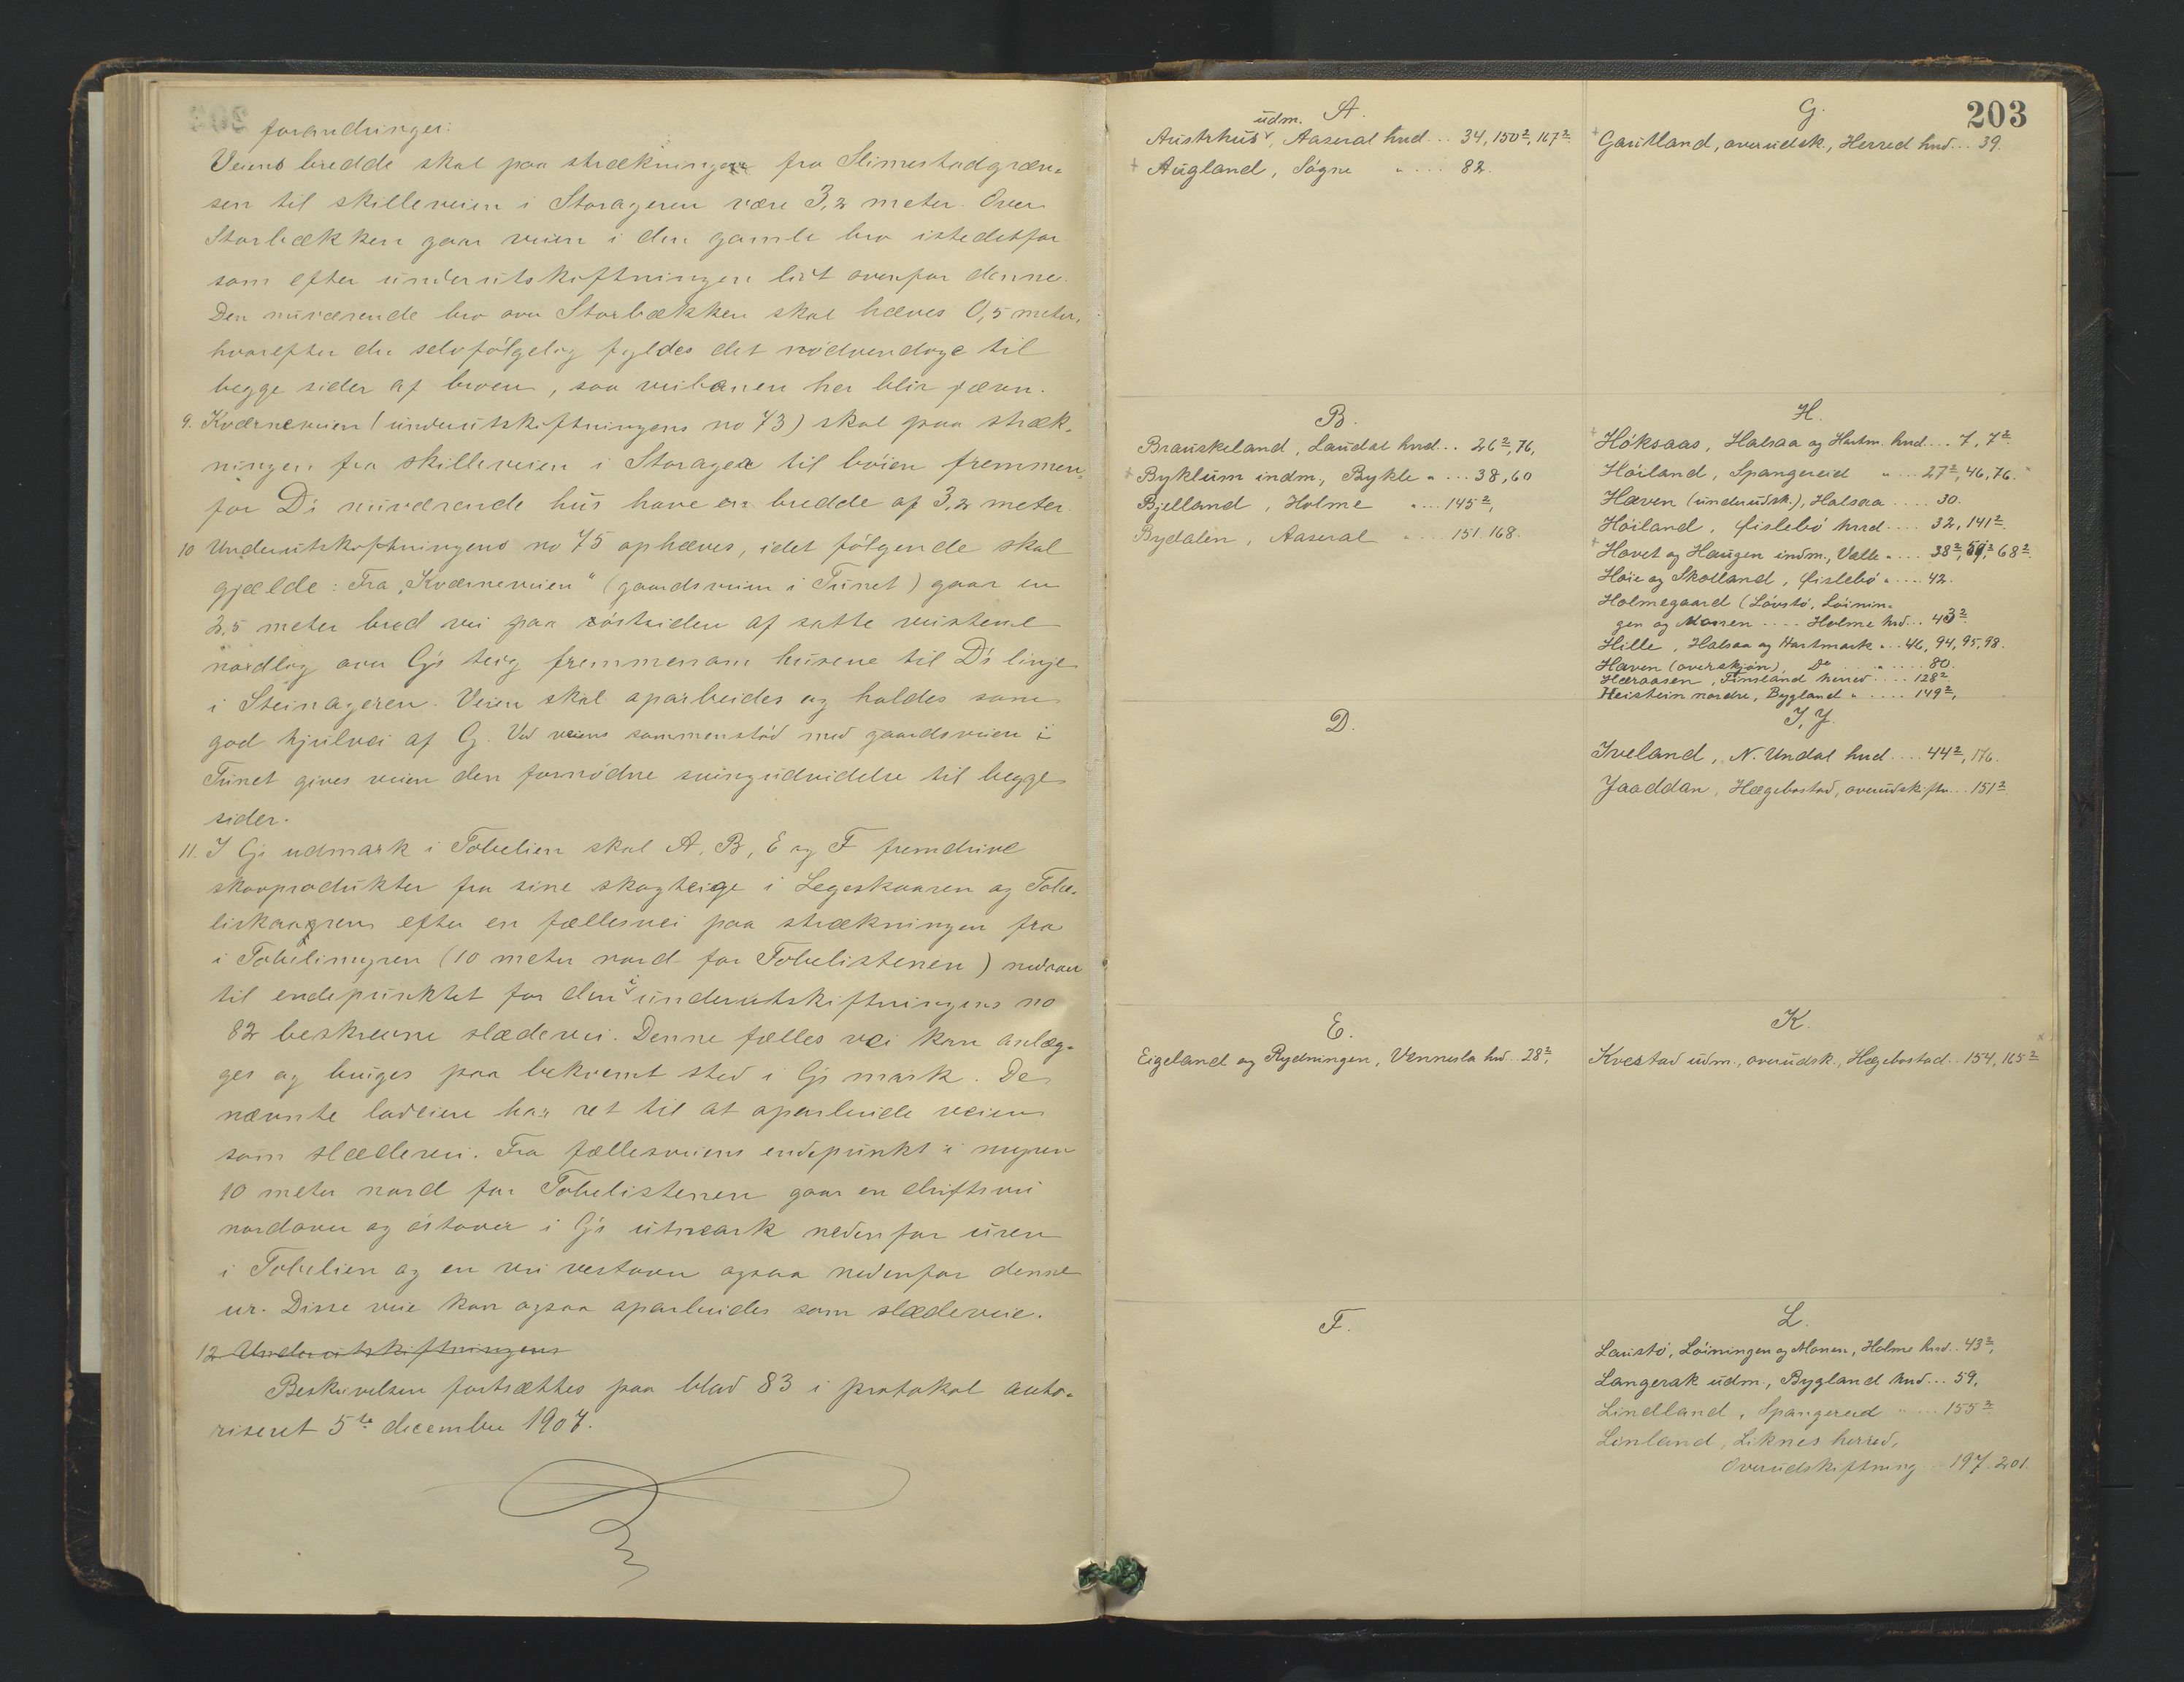 forandringer:
Veiens bredde skal paa strækningen fra Slimestadgræn-
sen til skilleveien i Storageren være 3,2 meter. Over
Storbækken gaar veien i den gamle bro istedetfor
som efter underutskiftningen litt ovenfor denne.
Den nuværende bro over Storbækken skal hæves 0,5 meter,
hvorefter der selvfølgelig fyldes det nødvendige til
begge sider af broen, saa veibanen her blir jævn.
9. Kværneveien (underutskiftningens no 73) skal paa stræk-
ningen fra skilleveien i Storager til bøien fremmen-
for D's nuværende hus have en bredde af 3,2 meter.
10 Underutskiftningens no 75 ophæves, idet følgende skal
gjælde: Fra „Kværneveien“ (gaardsveien i Tunet) gaar en
2,5 meter bred vei paa østsiden af satte veistene
nordlig over G's teig fremmenom husene til D's linje
i Steinageren. Veien skal oparbeides og holdes som
god hjulvei af G. Ved veiens sammenstød med gaardsveien i
Tunet gives veien den fornødne svingudvidelse til begge
sider.
11. I G's udmark i Tobelien skal A, B, E og F fremdrive
skovprodukter fra sine skogteige i Legeskaaren og Tobe-
liskaaren efter en fællesvei paa strækningen fra
i Tobelimyren (10 meter nord for Tobelistenen) nedover
til endepunktet for den i underutskiftningens no
82 beskrevne slædevei. Denne fælles vei kan anlæg-
ges og bruges paa bekvemt sted i G's mark. De
nævnte lodeiere har ret til at oparbeide veien
som slædevei. Fra fællesveiens endepunkt i myren
10 meter nord for Tobelistenen gaar en driftsvei
nordover og østover i G's utmark nedenfor uren
i Tobelien og en vei vestover ogsaa nedenfor denne
ur. Disse veie kan ogsaa oparbeides som slædeveie.
12 Underutskiftningens
Beskrivelsen fortsættes paa blad 83 i protokol auto-
riseret 5te decembre 1907.
203
A.
udm.
Austrhus, Aaseral hrd... 34, 150², 167²
+ Augland, Søgne " .... 82.
B.
Brauskeland, Laudal hrd... 26², 76,
+ Byklum indm., Bykle " ... 38, 60
Bjelland, Holme " ... 145²,
Bydalen, Aaseral " .... 151. 168.
D.
E.
Eigeland og Rydningen, Vennesla hrd.. 28²,
F.
G.
+ Gautland, overudsk., Herred hrd... 39.
H.
+ Høksaas, Halsaa og Hartm. hrd... 7, 7²
Høiland, Spangereid " ... 27², 46, 76.
Haven (underudsk.), Halsaa .... 30.
Høiland, Øislebø hrd.... 32, 141²
+ Hovet og Haugen indm., Valle " .... 38², 59², 68²
Høie og Skolland, Øislebø " .... 42.
Holmegaard (Løvstø, Løinin-
gen og Monen .... Holme hrd... 43²
Hille, Halsaa og Hartmark " .. 46, 94, 95, 98.
Haven (overskjøn), Do " ..... 80.
Hæraasen, Finsland herred .... 128²
Heistein nordre, Bygland " .... 149²,
I, J.
Iveland, N. Undal hrd.... 44², 176.
Jaaddan, Hægebostad, overudskiftn... 151²
K.
Kvestad udm., overudsk., Hægebostad.. 154, 165²
L.
Laustø, Løiningen og Monen, Holme hrd.. 43²,
Langerak udm., Bygland hrd... 59,
Lindland, Spangereid " .... 155²
Linland, Liknes herred,
Overudskiftning ... 197. 201.